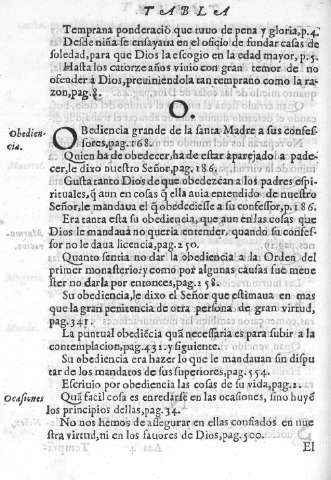 TABLA
Temprana ponderació que tuuo de pena y gloria, p.4.
Desde niña se ensayaua en el oficio de fundar casas de
soledad, para que Dios la escogio en la edad mayor, p.5.
Hasta los catorze años viuio con gran temor de no
ofender a Dios, preuiniendola tan temprano como la ra-
zon, pag.8.
O.
Obedien-
cia.
OBediencia grande de la santa Madre a sus confes-
sores, pag.168.
Quien ha de obedecer, ha de estar aparejado a pade-
cer, le dixo nuestro Señor, pag.186.
Gusta tanto Dios de que obedezcan a los padres espi-
rituales, q̃ aun en cosas q̃ ella auia entendido de nuestro
Señor, le mandaua el q̃ obedeciesse a su confessor, p.186.
Era tanta esta su obediencia, que aun en las cosas que
Dios le mandaua no queria entender, quando su confes-
sor no le daua licencia, pag.250.
Quanto sentia no dar la obediencia a la Orden del
primer monasterio: y como por algunas causas fue mene
ster no darla por entonces, pag.258.
Su obediencia, le dixo el Señor que estimaua en mas
que la gran penitencia de otra persona de gran virtud,
pag.341.
La puntual obediẽcia quã necessaria es para subir a la
contemplacion, pag.431. y siguiente.
Su obediencia era hazer lo que le mandauan sin dispu
tar de los mandatos de sus superiores, pag.554.
Escriuio por obediencia las cosas de su vida, pag.1.
Ocasiones
Quã facil cosa es enredarse en las ocasiones, sino huyẽ
los principios dellas, pag.34.
No nos hemos de assegurar en ellas confiados en nue
stra virtud, ni en los fauores de Dios, pag.500.
El